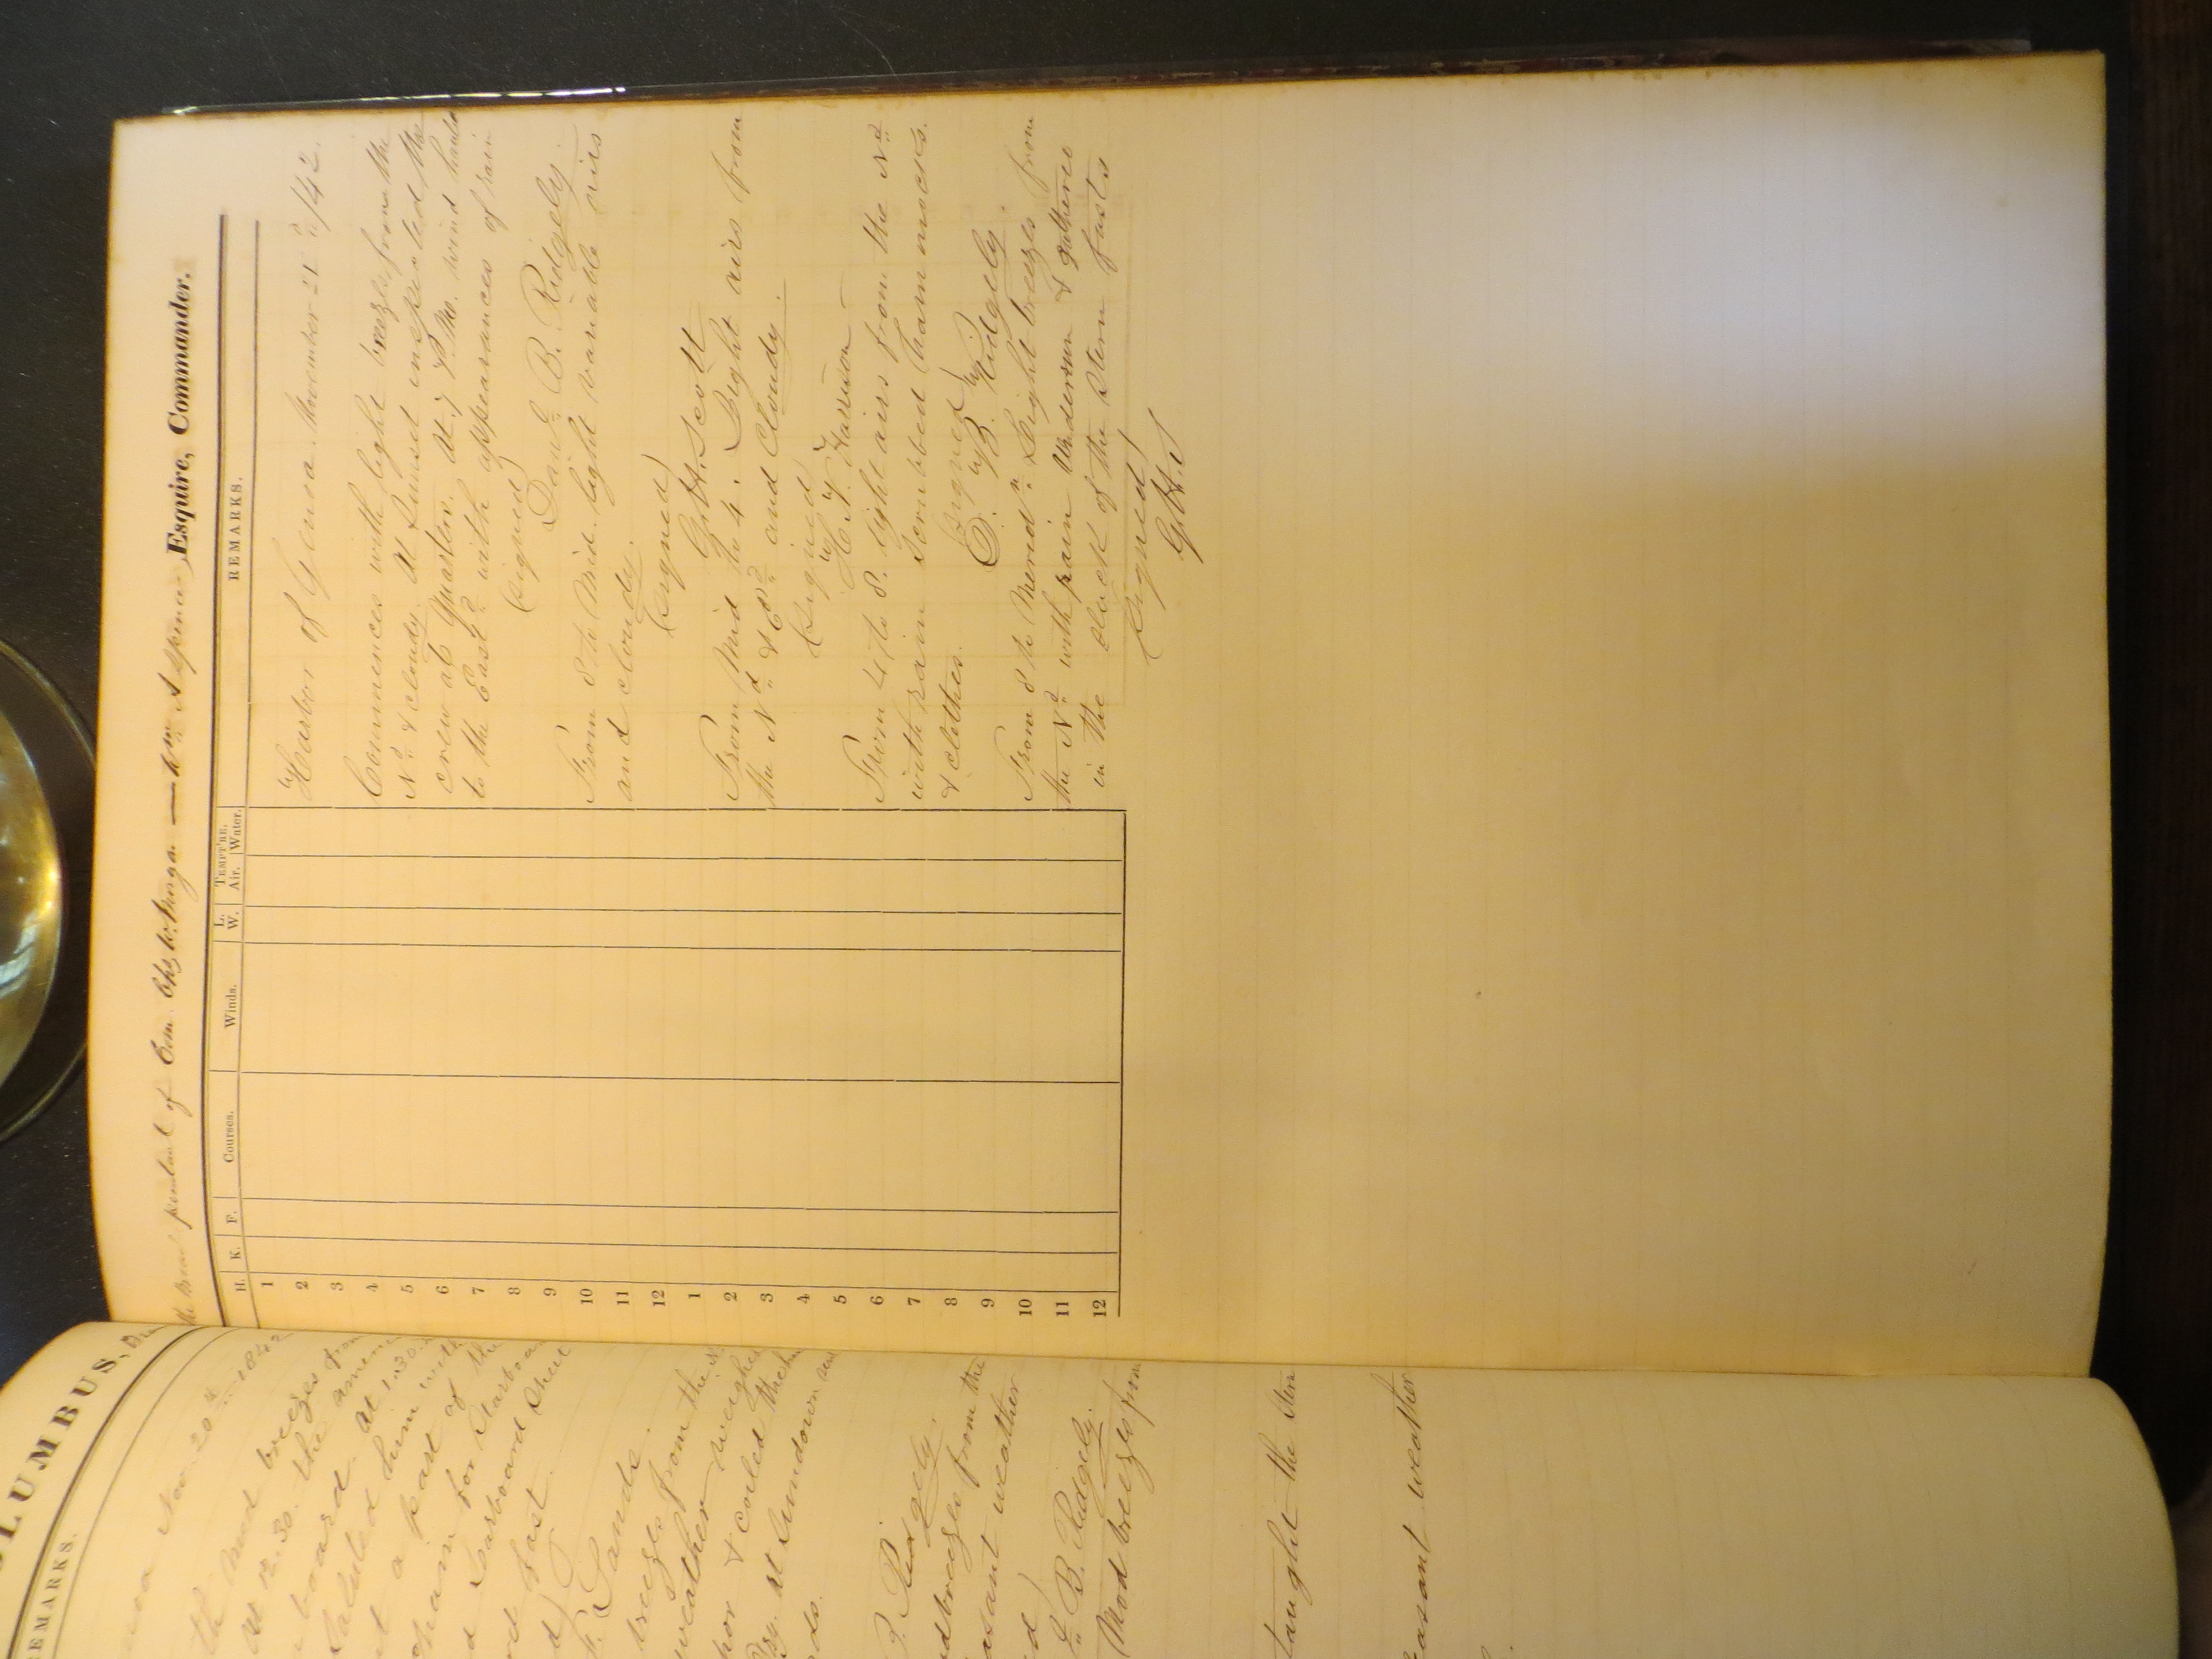 LUMBUS,
REMARKS.
Nov 20th 1842
Mod breezes from
At 12.30. the
board. At 1.30
Saluted him with
a part of the
chain for Starboard
Larboard Sheet
Fast
d)
F. Sands.
breezes from the N
weather weighed
& coiled
At Sundown
ds.
B. Ridgely.
breezes from the
asant weather
d)
B. Ridgely.
Mod breezes from
taught the Stern
easant weather
the Broad pendant of Com. Chs. W. Morgan. — Wm. A Spencer, Esquire, Commander.
H. K. F. Courses. Winds. L. W. TEMPT'RE. Air. Water. REMARKS.
1
2
3
4
5
6
7
8
9
10
11
12
1
2
3
4
5
6
7
8
9
10
11
12
Harbor of Genoa. November 21st /42.
Commences with light breezes from the
Nd. & cloudy. At Sunset inspected the
crew at Quarters. At 7 P.M. wind hauled
to the Eastd. with appearances of rain
(Signed)
Danl. B. Ridgely.
From 8 to Mid. light variable airs
and cloudy.
(Signed)
G. H. Scott
From Mid to 4. Light airs from
the Nd. & Ed. and Cloudy.
(Signed)
H. Y. Harrison
From 4 to 8. light airs from the Nd.
with rain scrubbed hammocks.
& clothes.
(Signed)
B. Ridgely.
From 8 to Meridn. Light breezes from
the Nd. with rain Underrun & gathered
in the slack of the Stern fasts
(Signed)
G.H.S